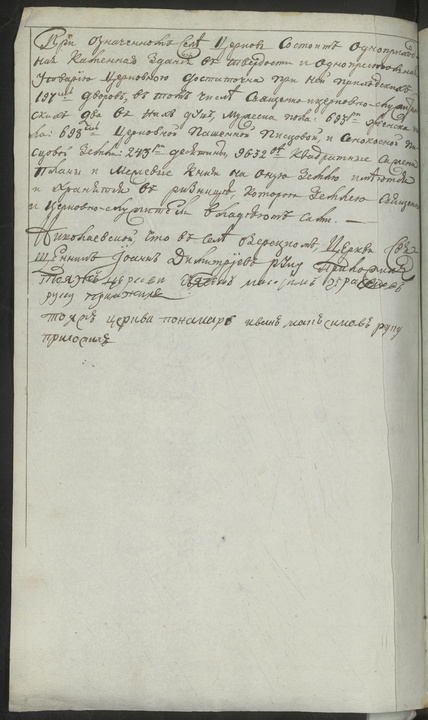 При означенномъ Селѣ Церковь Состоитъ однопри
ная каменная зданіе въ твердости и однопрестолная
Утварію Церковною достаточна при ней приходскихъ
197ми дворовъ, въ томъ числѣ Священно-церковно-служи
скихъ два въ нихъ душъ, мужеска пола: 693ри женска по
ла: 693ри Церковной Пашенной Писцовой, и Сенокосной Пи
сцовой Земли: 243ри десятины 9632ве Квадратные Сажени
Планъ и Межевые Книги на оную Землю
и хранятся въ ризницѣ, которою Землею Священно
и Церковно-служители Владѣютъ сами. —
Николаевской, что въ селѣ Озерецкомъ Церкви Свя
щенникъ Иоаннъ Димитріевъ руку Приложилъ
Тояжъ церкви
руку приложилъ
тояжъ церкви пономарь иванъ максимовъ руку
приложилъ